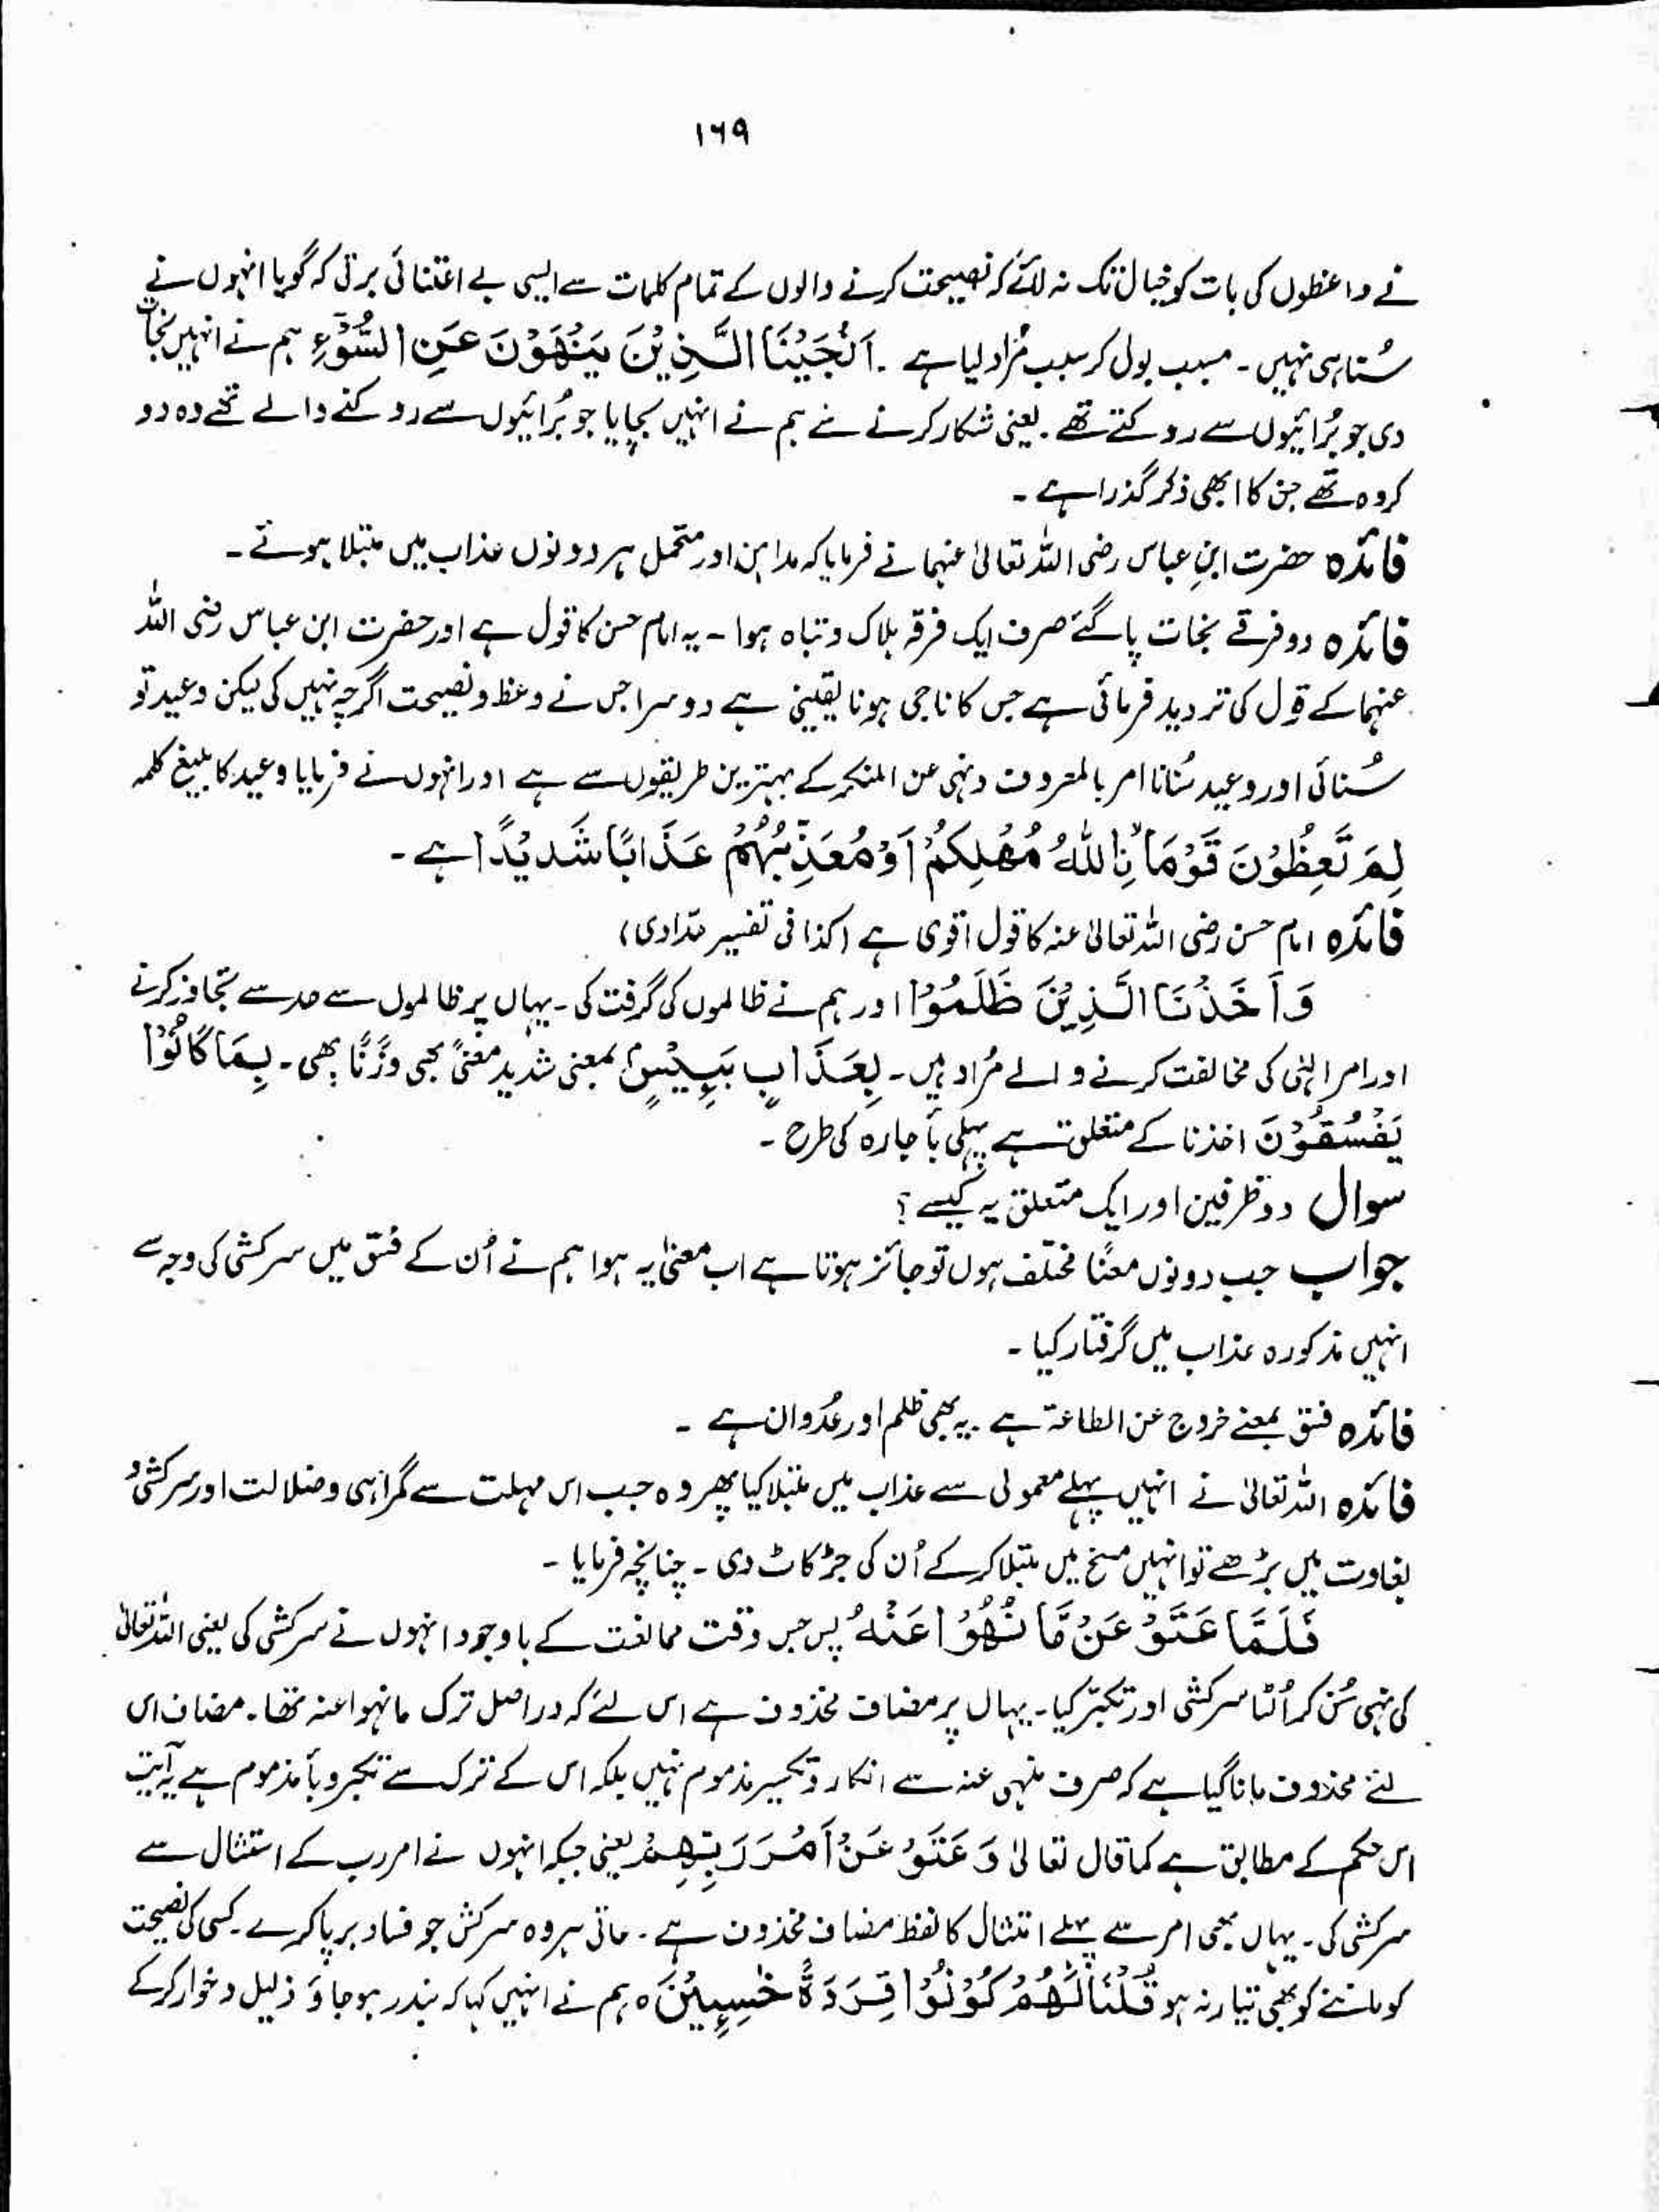 ۱۶۹
نے واعظوں کی بات کو خیال تک نہ لائے کہ نصیحت کرنے والوں کے تمام کلمات سے ایسی بے اعتنائی برتی کہ گویا انہوں نے
سُنا ہی نہیں ۔ مسبب بول کر سبب مُراد لیا ہے ۔ اَنْجَيْنَا الَّذِيْنَ يَنْهَوْنَ عَنِ السُّوْٓءِ ہم نے انہیں نجات
دی جو بُرائیوں سے روکتے تھے ۔ یعنی شکار کرنے سے ہم نے انہیں بچایا جو بُرائیوں سے روکنے والے تھے وہ دو
گروہ تھے جن کا ابھی ذکر گذرا ہے ۔
فائدہ حضرت ابنِ عباس رضی اللہ تعالیٰ عنہما نے فرمایا کہ مداہن اور متحمل ہر دونوں عذاب میں مبتلا ہوئے ۔
فائدہ دو فرقے نجات پا گئے صرف ایک فرقہ ہلاک و تباہ ہوا ۔ یہ امام حسن کا قول ہے اور حضرت ابن عباس رضی اللہ
عنہما کے قول کی تردید فرمائی ہے جس کا ناجی ہونا یقینی ہے دوسرا جس نے وعظ و نصیحت اگرچہ نہیں کی لیکن وعید تو
سُنائی اور وعید سُنانا امر بالمعروف و نہی عن المنکر کے بہترین طریقوں سے ہے اور انہوں نے فرمایا وعید کا بلیغ کلمہ
لِمَ تَعِظُوْنَ قَوْمَاْنِ اللّٰهُ مُهْلِكُهُمْ اَوْ مُعَذِّبُهُمْ عَذَابًا شَدِيْدًا ہے ۔
فائدہ امام حسن رضی اللہ تعالیٰ عنہ کا قول اقوی ہے (کذا فی تفسیر حدّادی)
وَ اَخَذْنَا الَّذِيْنَ ظَلَمُوْا اور ہم نے ظالموں کی گرفت کی ۔ یہاں پر ظالموں سے حد سے تجاوز کرنے
اور امر الٰہی کی مخالفت کرنے والے مُراد ہیں ۔ بِعَذَابٍ بَـِٕيْسٍۭ بمعنی شدید معنیً بھی وزنًا بھی ۔ بِمَا كَانُوْا
يَفْسُقُوْنَ اخذنا کے متعلق ہے پہلی با جارہ کی طرح ۔
سوال دو ظرفین اور ایک متعلق یہ کیسے ؟
جواب جب دونوں معنًا مختلف ہوں تو جائز ہوتا ہے اب معنیٰ یہ ہوا ہم نے اُن کے فسق میں سرکشی کی وجہ سے
انہیں مذکورہ عذاب میں گرفتار کیا ۔
فائدہ فسق بمعنے خروج عن الطاعۃ ہے ۔ یہ بھی ظلم اور عُدوان ہے ۔
فائدہ اللہ تعالیٰ نے انہیں پہلے معمولی سے عذاب میں مبتلا کیا پھر وہ جب اس مہلت سے گمراہی و ضلالت اور سرکشی و
بغاوت میں بڑھے تو انہیں مسخ میں مبتلا کر کے اُن کی جڑ کاٹ دی ۔ چنانچہ فرمایا ۔
فَلَمَّا عَتَوْ عَنْ مَّا نُهُوْا عَنْهُ پس جس وقت ممانعت کے باوجود انہوں نے سرکشی کی یعنی اللہ تعالیٰ
کی نہی سُن کر اُلٹا سرکشی اور تکبّر کیا ۔ یہاں پر مضاف مخذوف ہے اس لئے کہ دراصل ترک ما نہوا عنہ تھا ۔ مضاف اس
لئے محذوف مانا گیا ہے کہ صرف منہی عنہ سے انکار و تکبیر مذموم نہیں بلکہ اس کے ترک سے تکبر و با مذموم ہے یہ آیت
اس حکم کے مطابق ہے کما قال تعالیٰ وَ عَتَوْ عَنْ اَمْرِ رَبِّهِمْ یعنی جبکہ انہوں نے امر رب کے امتثال سے
سرکشی کی ۔ یہاں بھی امر سے پہلے امتثال کا لفظ مضاف مخذوف ہے ۔ عاتی ہر وہ سرکش جو فساد برپا کرے ۔ کسی کی نصیحت
کو ماننے کو بھی تیار نہ ہو قُلْنَا لَهُمْ كُوْنُوْا قِرَدَةً خٰسِـِٕيْنَ ہ ہم نے انہیں کہا کہ بندر ہو جاؤ ذلیل و خوار کر کے